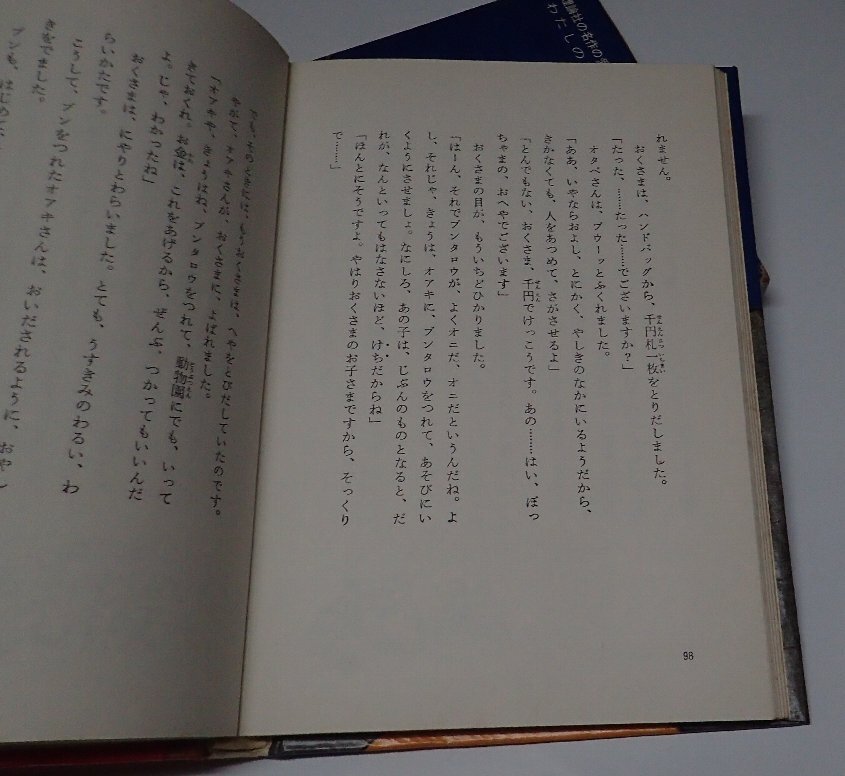 れません。
おくさまは、ハンドバッグから、千円札一枚をとりだしました。
「たった、……たった……でございますか？」
オタベさんは、プウーッとふくれました。
「ああ、いやならおよし、とにかく、やしきのなかにいるようだから、
きかなくても、人をあつめて、さがさせるよ」
「とんでもない、おくさま、千円でけっこうです。あの……はい、ぼっ
ちゃまの、おへやでございます」
おくさまの目が、もういちどひかりました。
「はーん、それでブンタロウが、よくオニだ、オニだというんだね。よ
し、それじゃ、きょうは、オアキに、ブンタロウをつれて、あそびにい
くようにさせましょ。なにしろ、あの子は、じぶんのものとなると、だ
れが、なんといってもはなさないほど、けちだからね」
「ほんとにそうですよ。やはりおくさまのお子さまですから、そっくり
で……」
98
だも、そのときには、もうおくさまは、へやをとびだしていたのです。
やがて、オアキさんが、おくさまに、よばれました。
「オアキや、きょうはね、ブンタロウをつれて、動物園にでも、いって
きておくれ。お金は、これをあげるから、ぜんぶ、つかってもいいんだ
よ。じゃ、わかったね」
おくさまは、にやりとわらいました。とても、うすきみのわるい、わ
らいかたです。
こうして、ブンをつれたオアキさんは、おいだされるように、おやし
きをでました。
ブンも、はじめて、
理論社の名作の
わたしの